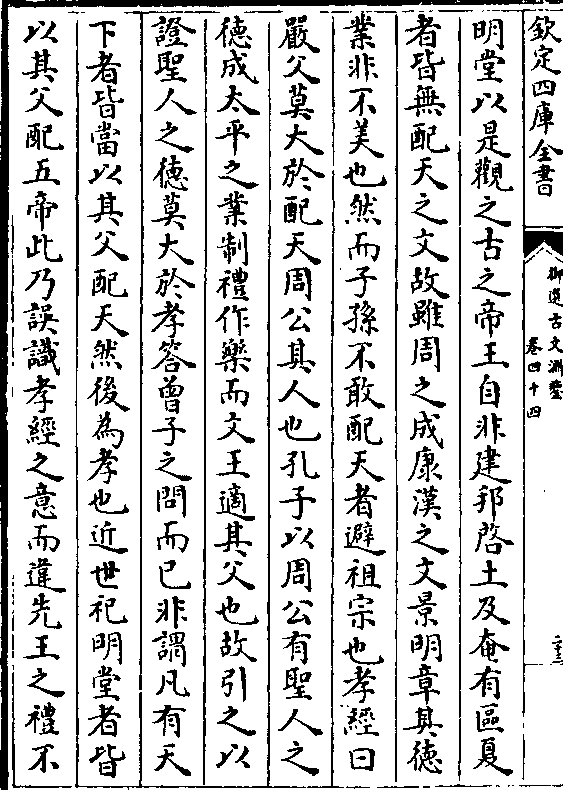 欽定四庫全書
御選古文淵鑒
卷四十四
明堂以是觀之古之帝王自非建邦啓土及奄有區夏
者皆無配天之文故雖周之成康漢之文景明章其德
業非不美也然而子孫不敢配天者避祖宗也孝經曰
嚴父莫大於配天周公其人也孔子以周公有聖人之
德成太平之業制禮作樂而文王適其父也故引之以
證聖人之德莫大於孝答曾子之問而已非謂凡有天
下者皆當以其父配天然後為孝也近世祀明堂者皆
以其父配五帝此乃誤識孝經之意而違先王之禮不